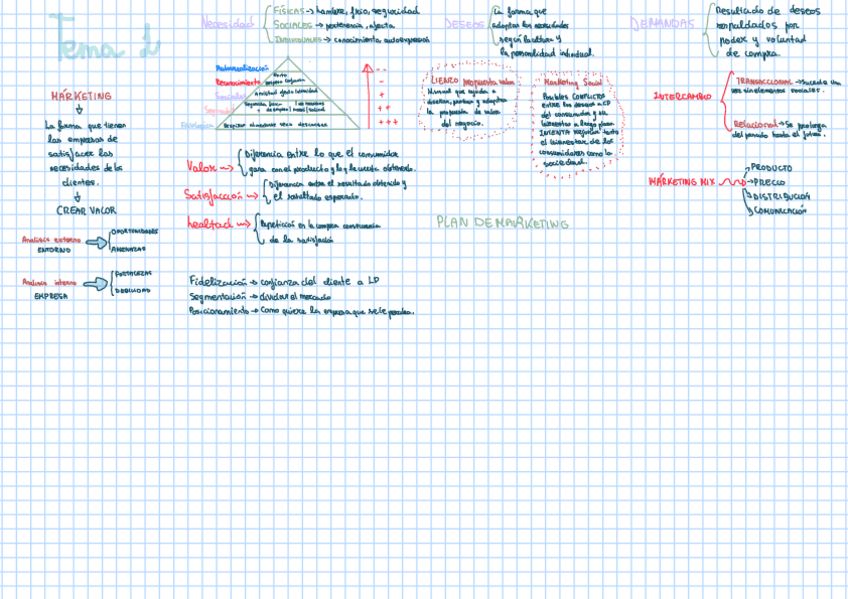 Tema 1
MÁRKETING
La forma que tienen
las empresas de
satisfacer las
necesidades de los
clientes.
CREAR VALOR
Análisis externo
ENTORNO
OPORTUNIDADES
AMENAZAS
Análisis interno
EMPRESA
FORTALEZAS
DEBILIDAD
Necesidad
FÍSICAS → hambre, frío, seguridad
SOCIALES → pertenencia, afecto
INDIVIDUALES → conocimiento, autoexpresión
DESEOS
La forma que
adoptan las necesidades
según la cultura y
la personalidad individual.
DEMANDAS
Resultado de deseos
respaldados por
poder y voluntad
de compra.
Autorrealización
Reconocimiento
Sociales
Seguridad
Éxito
Respirar alimentarse sexo descansar
--
-
+
++
+++
LIENZO propuesta valor
Manual que ayuda a
diseñar, probar y adaptar
la propuesta de valor
del negocio.
Marketing Social
Posibles CONFLICTOS
entre los deseos a CP
del consumidor y su
bienestar a largo plazo
INTENTA mejorar tanto
el bienestar de los
consumidores como la
sociedad.
INTERCAMBIO
TRANSACCIONAL → Sucede una
vez sin elementos sociales.
Relacional → Se prolonga
del pasado hasta el futuro.
Valor →
Diferencia entre lo que el consumidor
gana con el producto y lo que cuesta obtenerlo.
Satisfacción →
Diferencia entre el resultado obtenido y
el resultado esperado.
Lealtad →
Repetición en la compra consecuencia
de la satisfacción
PLAN DE MARKETING
MÁRKETING MIX
→ PRODUCTO
→ PRECIO
→ DISTRIBUCIÓN
→ COMUNICACIÓN
Fidelización → confianza del cliente a LP
Segmentación → dividir el mercado
Posicionamiento → Como quiere la empresa que se le perciba.